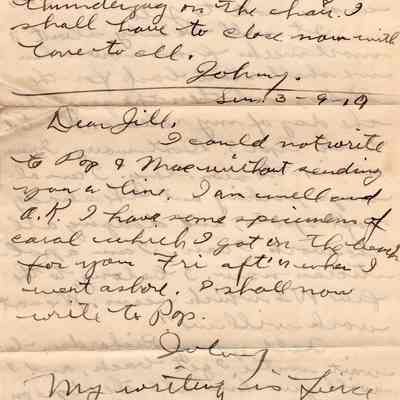 thunderjug on the chair. I
shall have to close now with
love to all.
Johny.
Sun. 3-9-19
Dear Jill.
I could not write
to Pop & Mac without sending
you a line. I am well and
O.K. I have some specimens of
coral which I got on the beach
for you Fri aft'n when I
went ashore. I shall now
write to Pop.
Johny
My writing is fierce